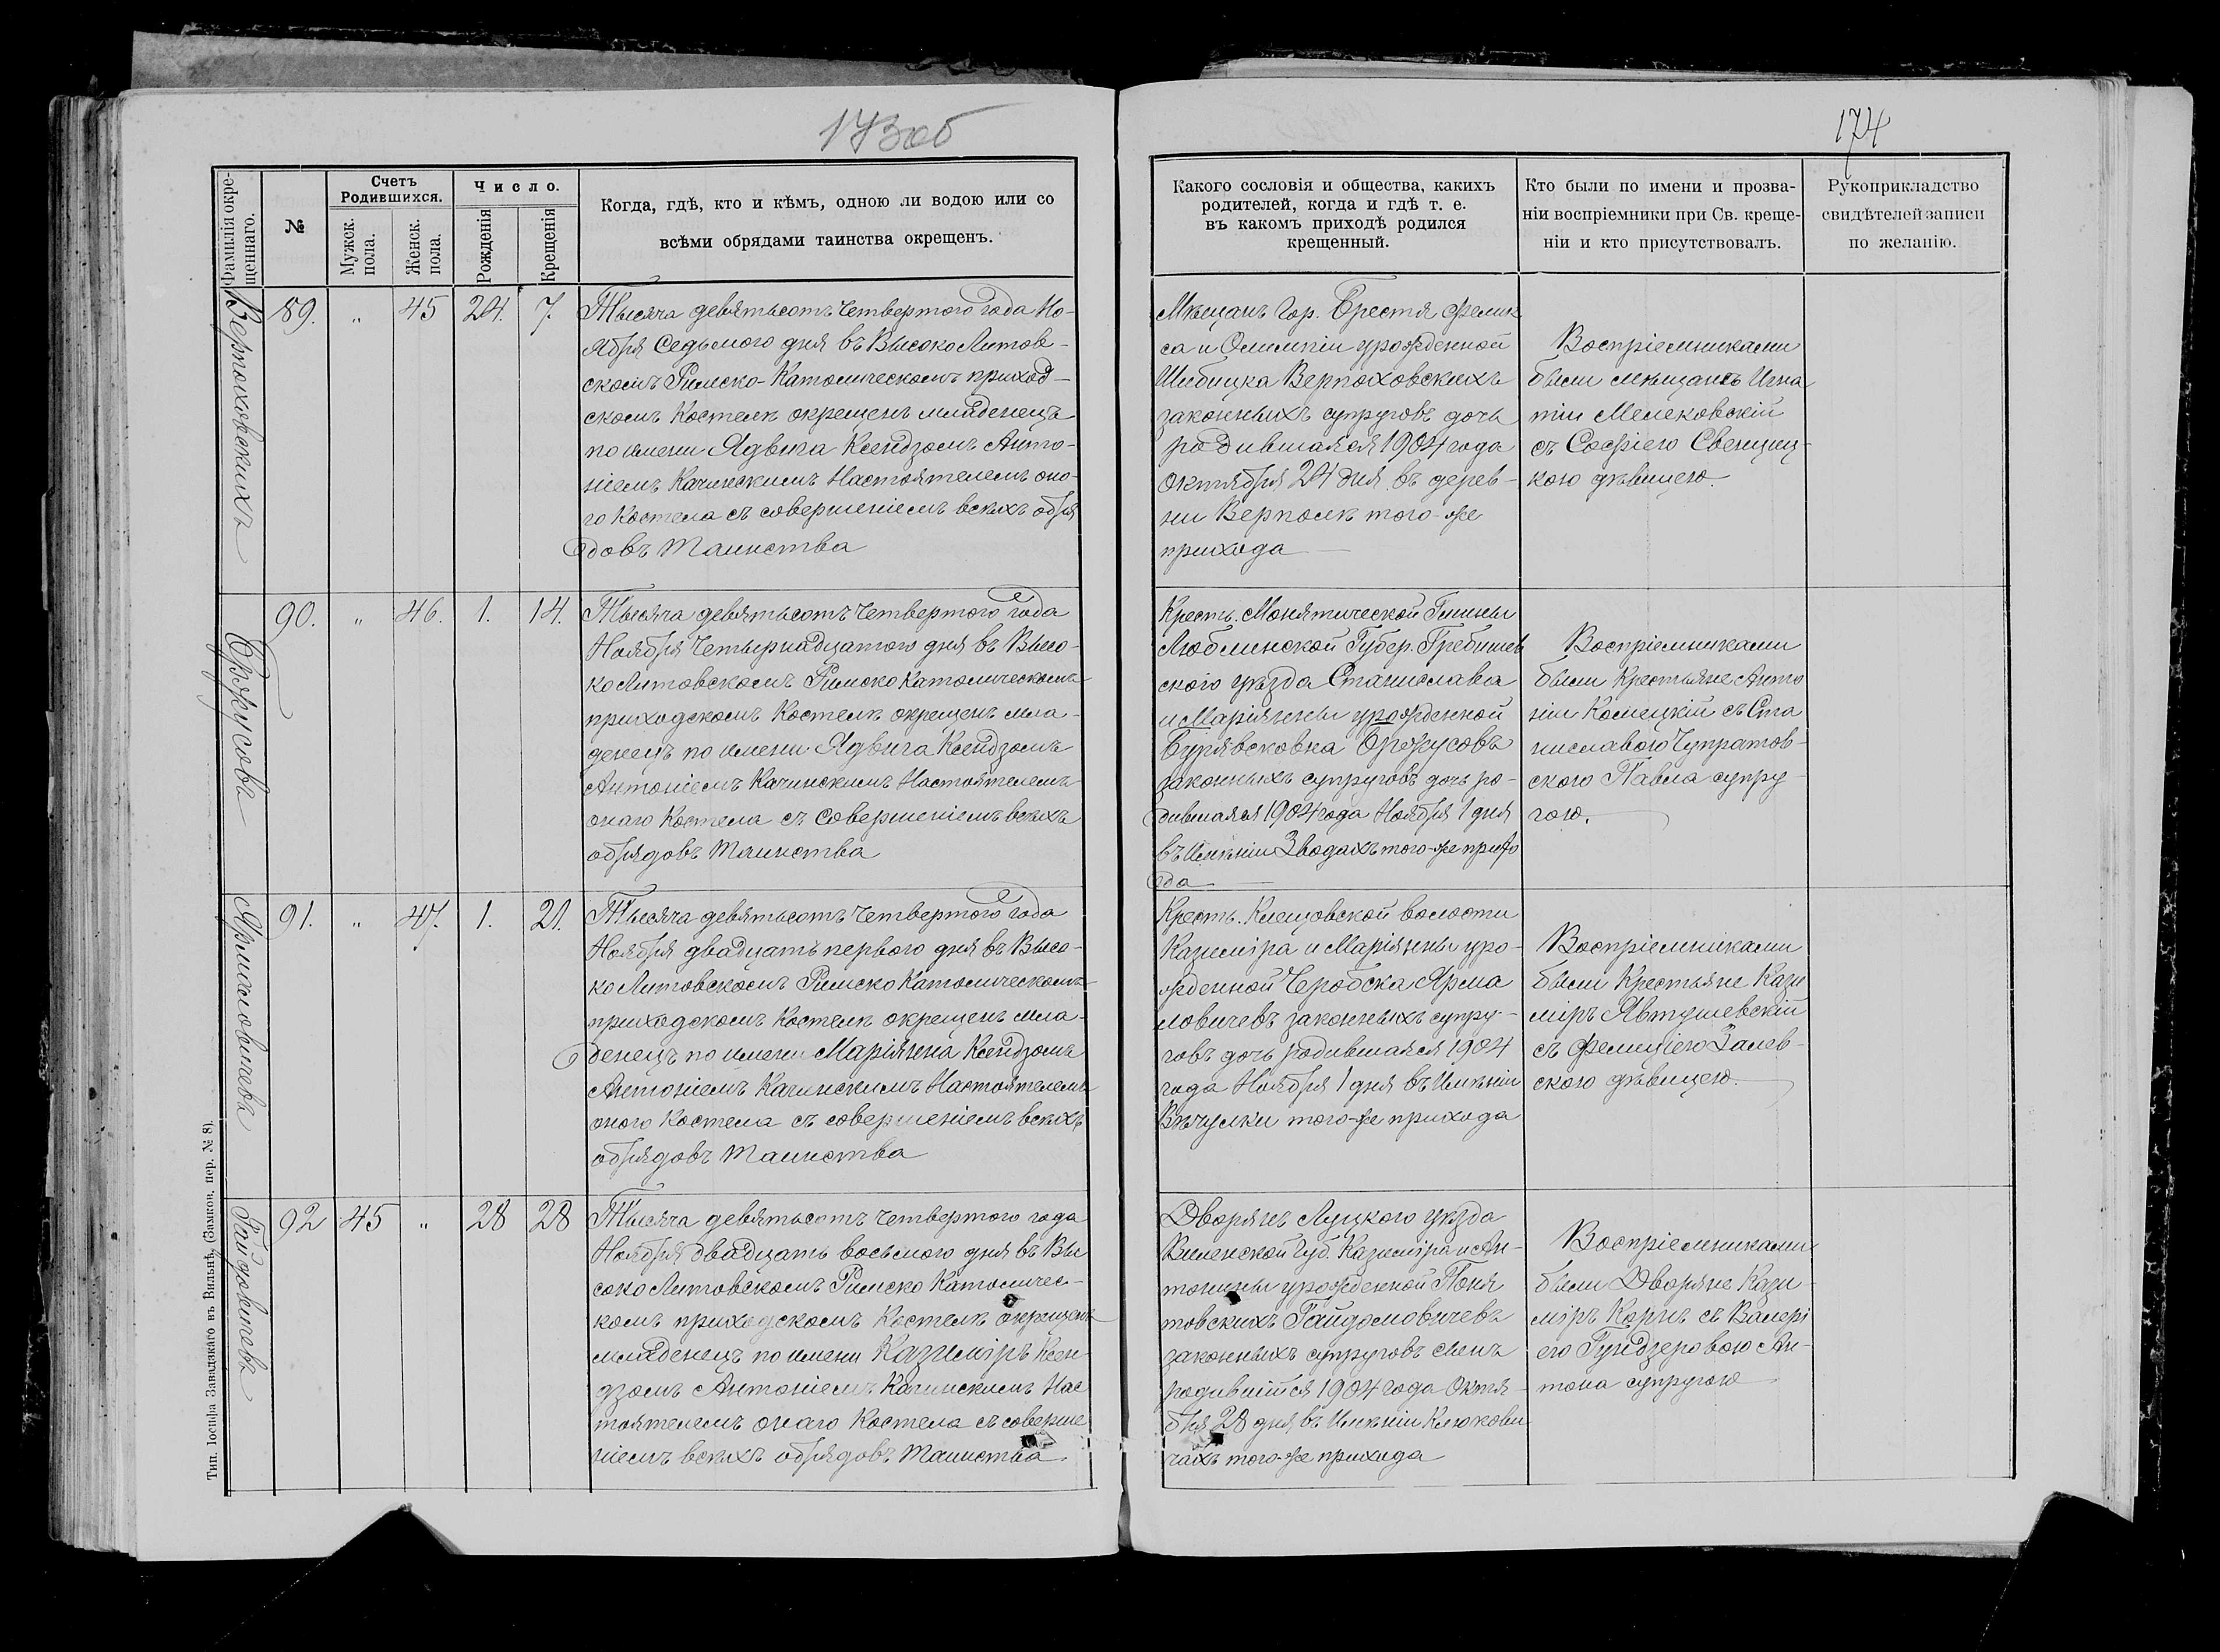 173об
174
Фамилія окре-
щеннаго.
№
Счетъ
Родившихся.
Мужск.
пола.
Женск.
пола.
Число.
Рожденія
Крещенія
Когда, гдѣ, кто и кѣмъ, одною ли водою или со
всѣми обрядами таинства окрещенъ.
Какого сословія и общества, какихъ
родителей, когда и гдѣ т. е.
въ какомъ приходѣ родился
крещенный.
Кто были по имени и прозва-
ніи воспріемники при Св. креще-
ніи и кто присутствовалъ.
Рукоприкладство
свидѣтелей записи
по желанію.
Верпоховскихъ
89. " 45 24. 7.
Тысяча девятьсотъ четвертого года Но-
ября Седьмого дня въ Высоко Литов-
скомъ Римско-Католическомъ приход-
скомъ Костелѣ окрещенъ младенецъ
по имени Ядвига Ксендзомъ Анто-
ніемъ Качинскимъ Настоятелемъ оно-
го Костела съ совершеніемъ всѣхъ обря
довъ Таинства
Мѣщанъ Гор. Брестя Фелик
са и Олимпіи урожденной
Шибицка Верпоховскихъ
законныхъ супруговъ дочь
родившаяся 1904 года
Октября 24 дня въ дерев-
ни Верполѣ того-же
прихода
Воспріемниками
были мѣщанъ Игна
тій Мелековскій
съ Софіею Свенциц-
кою дѣвицею.
90. " 46. 1. 14.
Тысяча девятьсотъ четвертого года
Ноября Четырнадцатого дня въ Высо-
ко Литовскомъ Римско Католическомъ
приходскомъ Костелѣ окрещенъ мла-
денецъ по имени Ядвига Ксендзомъ
Антоніемъ Качинскимъ Настоятелемъ
онаго Костела съ Совершеніемъ всѣхъ
обрядовъ Таинства
Крестъ. Монятической Гмины
Люблинской Губер. Гребишев
ского уѣзда Станислава
и Маріянны урожденной
законныхъ супруговъ дочь ро-
дившаяся 1904 года Ноября 1 дня
въ Имѣніи Зводахъ того-же прихо
да
Воспріемниками
были Крестьяне Анто
ній Комецкій съ Ста
ниславою Чупратов-
скою Павла супру
гою.
Ярмоловичева
91. " 47. 1. 21.
Тысяча девятьсотъ четвертого года
Ноября двадцать первого дня въ Высо-
ко Литовскомъ Римско Католическомъ
приходскомъ Костелѣ окрещенъ мла-
денецъ по имени Маріянна Ксендзомъ
Антоніемъ Качинскимъ Настоятелемъ
оного Костела съ совершеніемъ всѣхъ
обрядовъ Таинства
Крестъ. Клещовской волости
Казиміра и Маріянны уро-
жденной Черобска Ярмо
ловичевъ законныхъ супру-
говъ дочь родившаяся 1904
года Ноября 1 дня въ Имѣніи
Вѣчулки того-же прихода
Воспріемниками
были Крестьяне Кази
міръ Явтушевскій
съ Фелиціею Залев-
скою дѣвицею.
92 45 " 28 28
Тысяча девятьсотъ четвертого года
Ноября двадцать восьмого дня въ Вы
соко Литовскомъ Римско Католичес-
комъ приходскомъ Костелѣ окрещенъ
младенецъ по имени Казиміръ Ксен-
дзомъ Антоніемъ Качинскимъ Нас
тоятелемъ онаго Костела съ соверше
ніемъ всѣхъ обрядовъ Таинства.
Дворянъ Луцкого уѣзда
Виленской Губ. Казиміра и Ан-
тонины урожденной Поня
товскихъ Гайдомовичевъ
законныхъ супруговъ сынъ
родившійся 1904 года Октя-
бря 28 дня въ Имѣніи Клюкови
чахъ того-же прихода
Воспріемниками
были Дворяне Кази-
міръ Корнъ съ Валері
ею Гундзеровою Ан-
тона супругою
Тип. Іосифа Завадзкаго въ Вильнѣ, (Замков. пер. № 8).